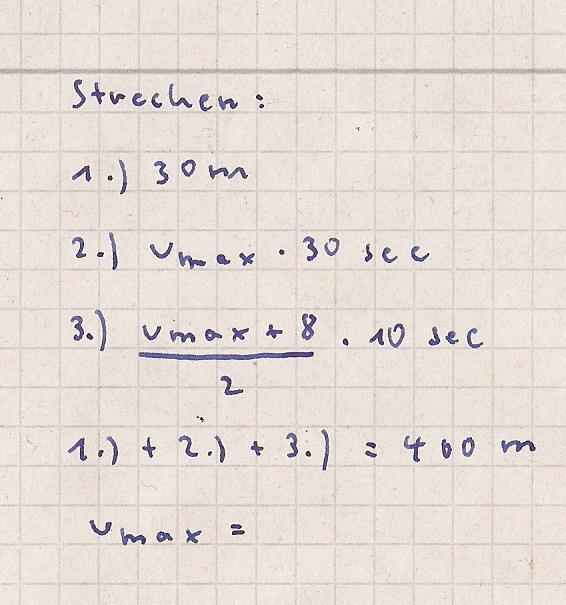 Strecken:
1.) 30 m
2.) vmax · 30 sec
3.) vmax + 8 / 2 · 10 sec
1.) + 2.) + 3.) = 400 m
vmax =